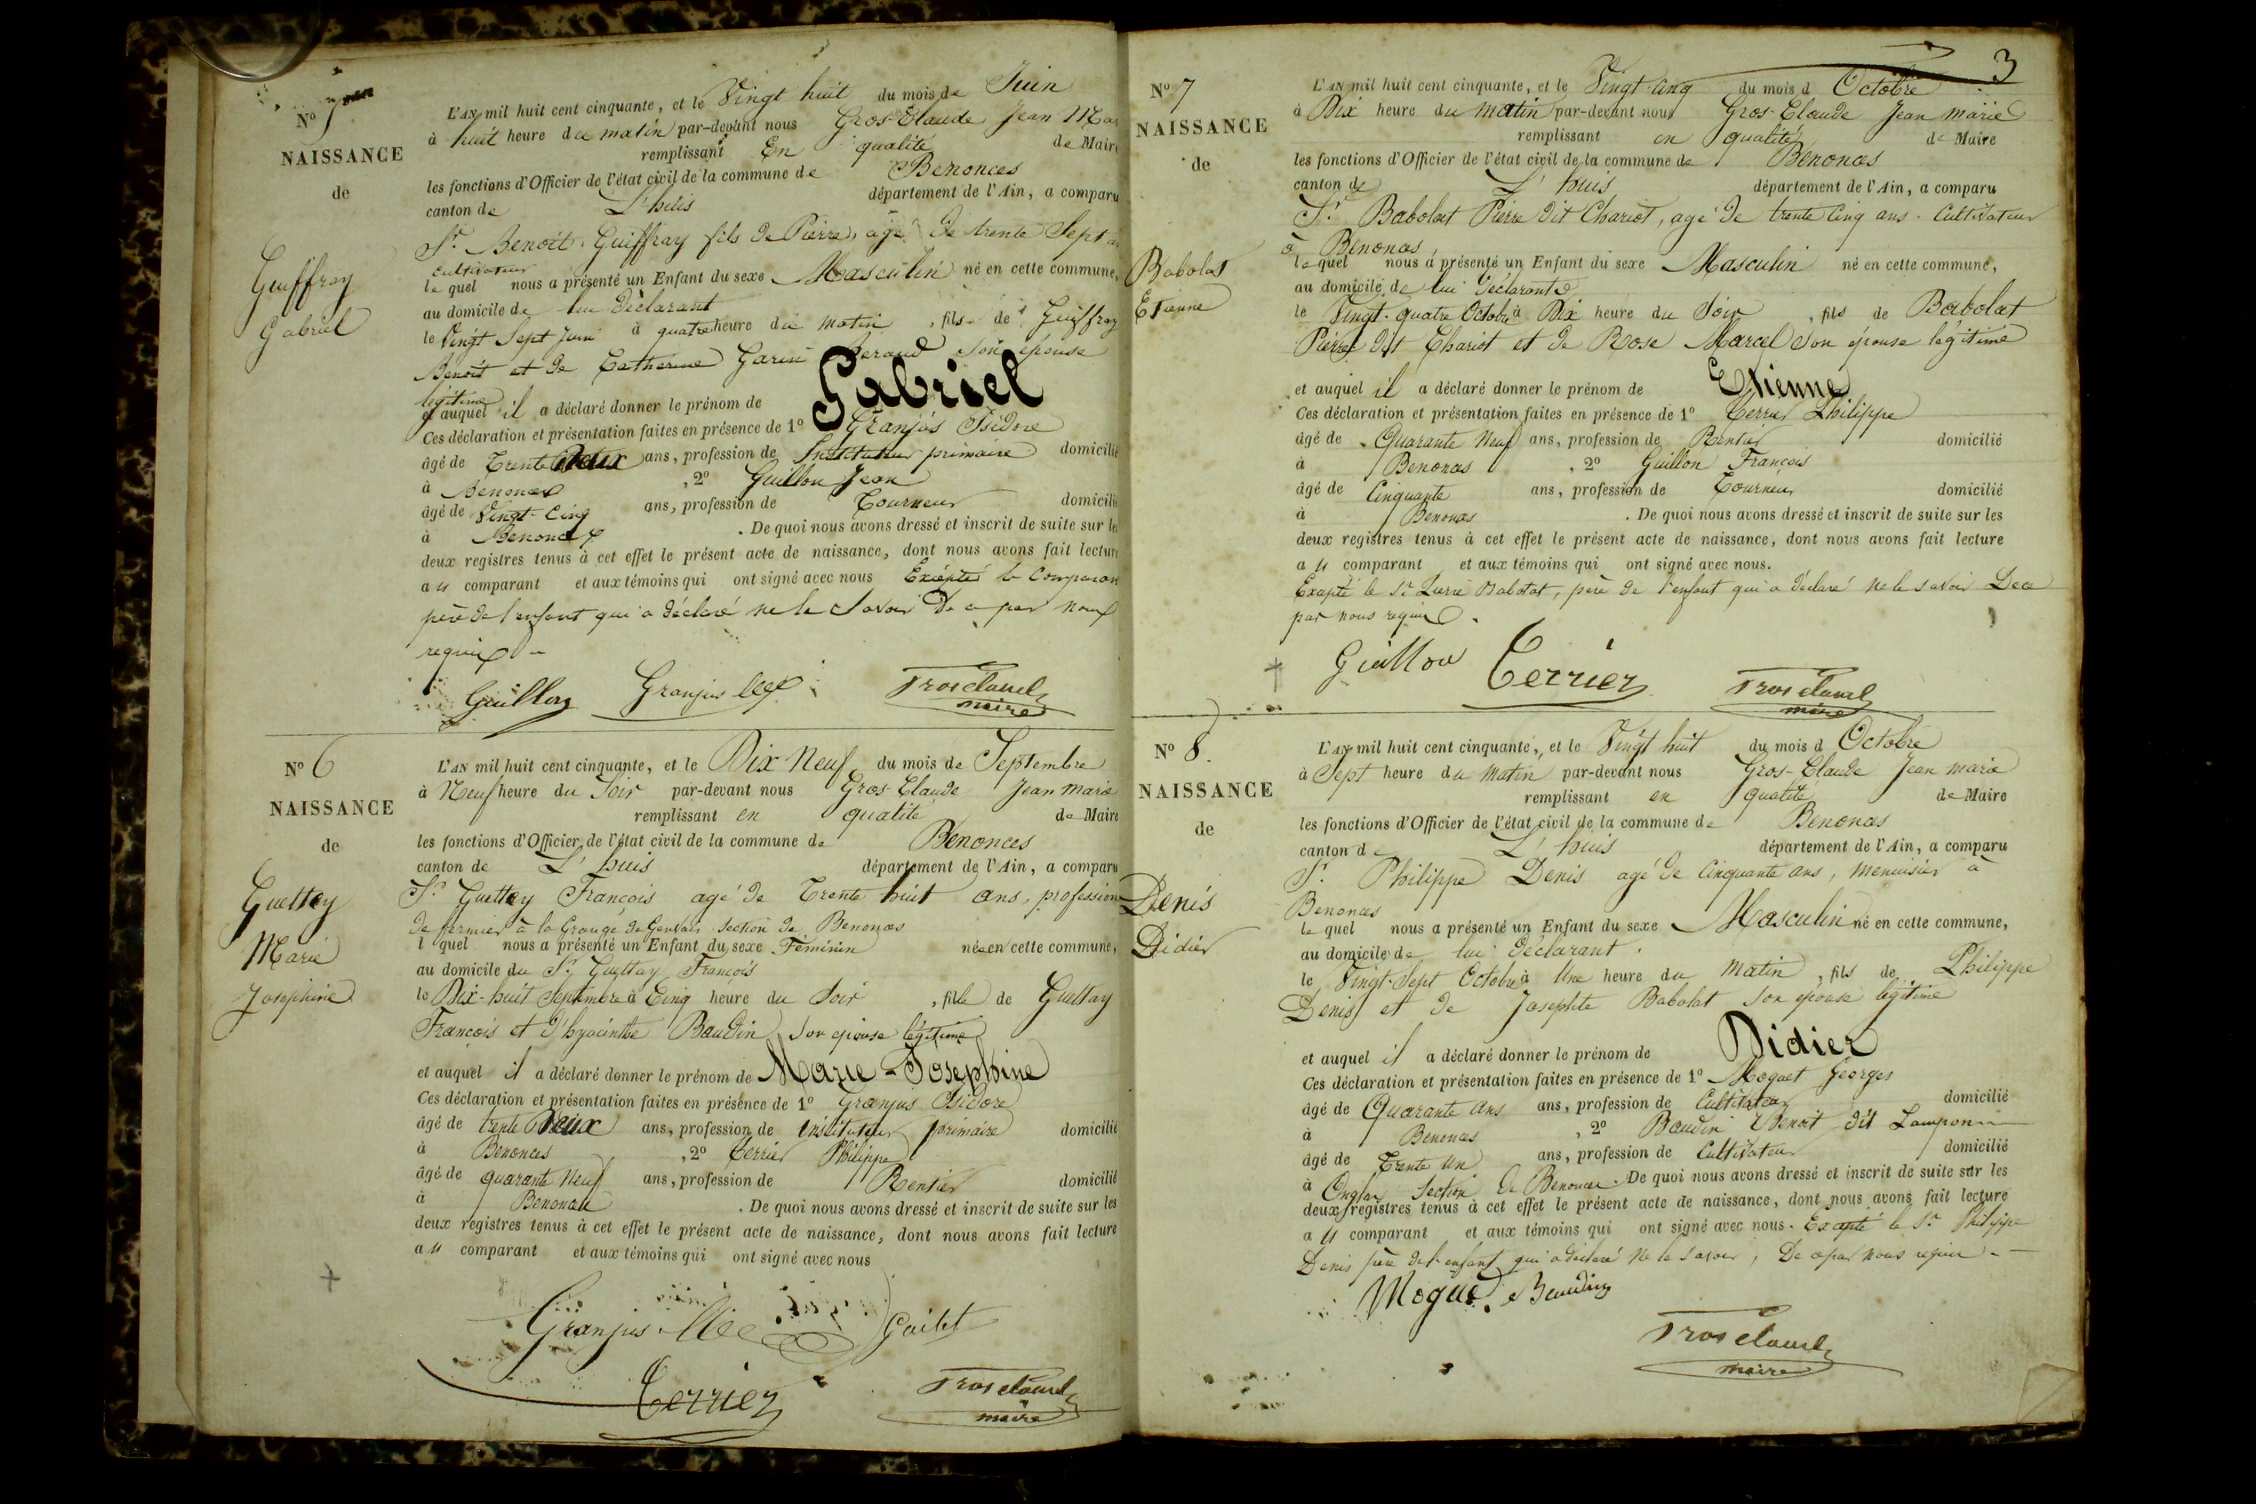 NAISSANCE
de
Guiffray
Gabriel
L'AN mil huit cent cinquante, et le Vingt huit du mois de Juin
à huit heure du matin par-devant nous Gros-Claude Jean Mar
remplissant En qualité de Maire
les fonctions d'Officier de l'état civil de la commune de Benonces
canton de L'huis département de l'Ain, a comparu
Sr. Benoît Guiffray fils de Pierre, agé de trente Sept
cultivateur
le quel nous a présenté un Enfant du sexe Masculin né en cette commune,
au domicile de lui Déclarant
le Vingt Sept Juin à quatre heure du matin, fils de Guiffray
Benoît et de Catherine Garin Beraud son épouse
légitime
et auquel il a déclaré donner le prénom de Gabriel
Ces déclaration et présentation faites en présence de 1º Granjus Isidore
âgé de Trente Deux ans, profession de Instituteur primaire domicilié
à Benonces, 2º Guillon Jean
âgé de Vingt-Cinq ans, profession de Tourneur domicilié
à Benonces. De quoi nous avons dressé et inscrit de suite sur les
deux registres tenus à cet effet le présent acte de naissance, dont nous avons fait lecture
au comparant et aux témoins qui ont signé avec nous Excépté le Comparan
père de l'enfant qui a déclaré ne le Savoir De ce par nous
requis
Guillon Granjus Grosclaude
maire
Nº 6
NAISSANCE
de
Guettay
Marie
Josephine
L'AN mil huit cent cinquante, et le Dix Neuf du mois de Septembre
à Neuf heure du Soir par-devant nous Gros-Claude Jean marie
remplissant en qualité de Maire
les fonctions d'Officier de l'état civil de la commune de Benonces
canton de L'huis département de l'Ain, a comparu
Sr. Guettay François agé de Trente huit ans, profession
de fermier à la Grange de section de Benonces
l quel nous a présenté un Enfant du sexe Féminin née en cette commune,
au domicile du Sr. Guettay François
le Dix-huit Septembre à Cinq heure du Soir, fille de Guettay
François et d'hyacinthe Baudin son épouse légitime
et auquel il a déclaré donner le prénom de Marie-Josephine
Ces déclaration et présentation faites en présence de 1º Granjus Isidore
âgé de trente Deux ans, profession de instituteur primaire domicilié
à Benonces, 2º Terrier Philippe
âgé de quarante Neuf ans, profession de Rentier domicilié
à Benonces. De quoi nous avons dressé et inscrit de suite sur les
deux registres tenus à cet effet le présent acte de naissance, dont nous avons fait lecture
au comparant et aux témoins qui ont signé avec nous
Granjus
Terrier Grosclaude
maire
3
Nº 7
NAISSANCE
de
Babolat
Etienne
L'AN mil huit cent cinquante, et le Vingt-cinq du mois d Octobre
à Dix heure du matin par-devant nous Gros-Claude Jean marie
remplissant en qualité de Maire
les fonctions d'Officier de l'état civil de la commune de Bénonces
canton de L'huis département de l'Ain, a comparu
Sr. Babolat Pierre dit Chariot, agé de trente Cinq ans. Cultivateur
à Bénonces
le quel nous a présenté un Enfant du sexe Masculin né en cette commune,
au domicile de lui Déclarant
le Vingt-quatre Octobre à Dix heure du Soir, fils de Babolat
Pierre dit Chariot et de Rose Marcel son épouse légitime
et auquel il a déclaré donner le prénom de Etienne
Ces déclaration et présentation faites en présence de 1º Terrier Philippe
âgé de Quarante Neuf ans, profession de Rentier domicilié
à Benonces, 2º Guillon François
âgé de Cinquante ans, profession de Tourneur domicilié
à Benonces. De quoi nous avons dressé et inscrit de suite sur les
deux registres tenus à cet effet le présent acte de naissance, dont nous avons fait lecture
au comparant et aux témoins qui ont signé avec nous.
Excepté le Sr. Pierre Babolat, père de l'enfant qui a déclaré ne le savoir De ce
par nous requis.
Guillon Terrier Grosclaude
maire
Nº 8.
NAISSANCE
de
Denis
Didier
L'AN mil huit cent cinquante, et le Vingt huit du mois d Octobre
à Sept heure du matin par-devant nous Gros-Claude Jean marie
remplissant en qualité de Maire
les fonctions d'Officier de l'état civil de la commune de Benonces
canton de L'huis département de l'Ain, a comparu
Sr. Philippe Denis agé de Cinquante ans, menuisier à
Benonces
le quel nous a présenté un Enfant du sexe Masculin né en cette commune,
au domicile de lui déclarant.
le Vingt-Sept Octobre à Une heure du Matin, fils de Philippe
Denis et de Josephte Babolat son épouse légitime
et auquel il a déclaré donner le prénom de Didier
Ces déclaration et présentation faites en présence de 1º Moguet Georges
âgé de Quarante ans ans, profession de Cultivateur domicilié
à Benonces, 2º Baudin Benoit dit Lampon
âgé de Trente Un ans, profession de Cultivateur domicilié
à Onglas Section de Benonces. De quoi nous avons dressé et inscrit de suite sur les
deux registres tenus à cet effet le présent acte de naissance, dont nous avons fait lecture
au comparant et aux témoins qui ont signé avec nous. Excepté le Sr. Philippe
Denis père de l'enfant qui a déclaré ne le savoir, De ce par nous requis
Baudin
Grosclaude
maire